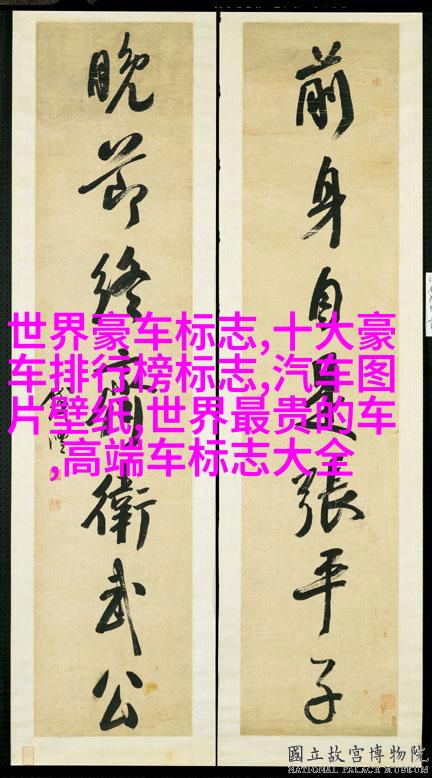 前身自是張平子
晚節終衛武公
世界豪车标志,十大豪
车排行榜标志,汽车图
片壁纸,世界最贵的车
,高端车标志大全
國立故宮博物院
NATIONAL PALACE MUSEUM